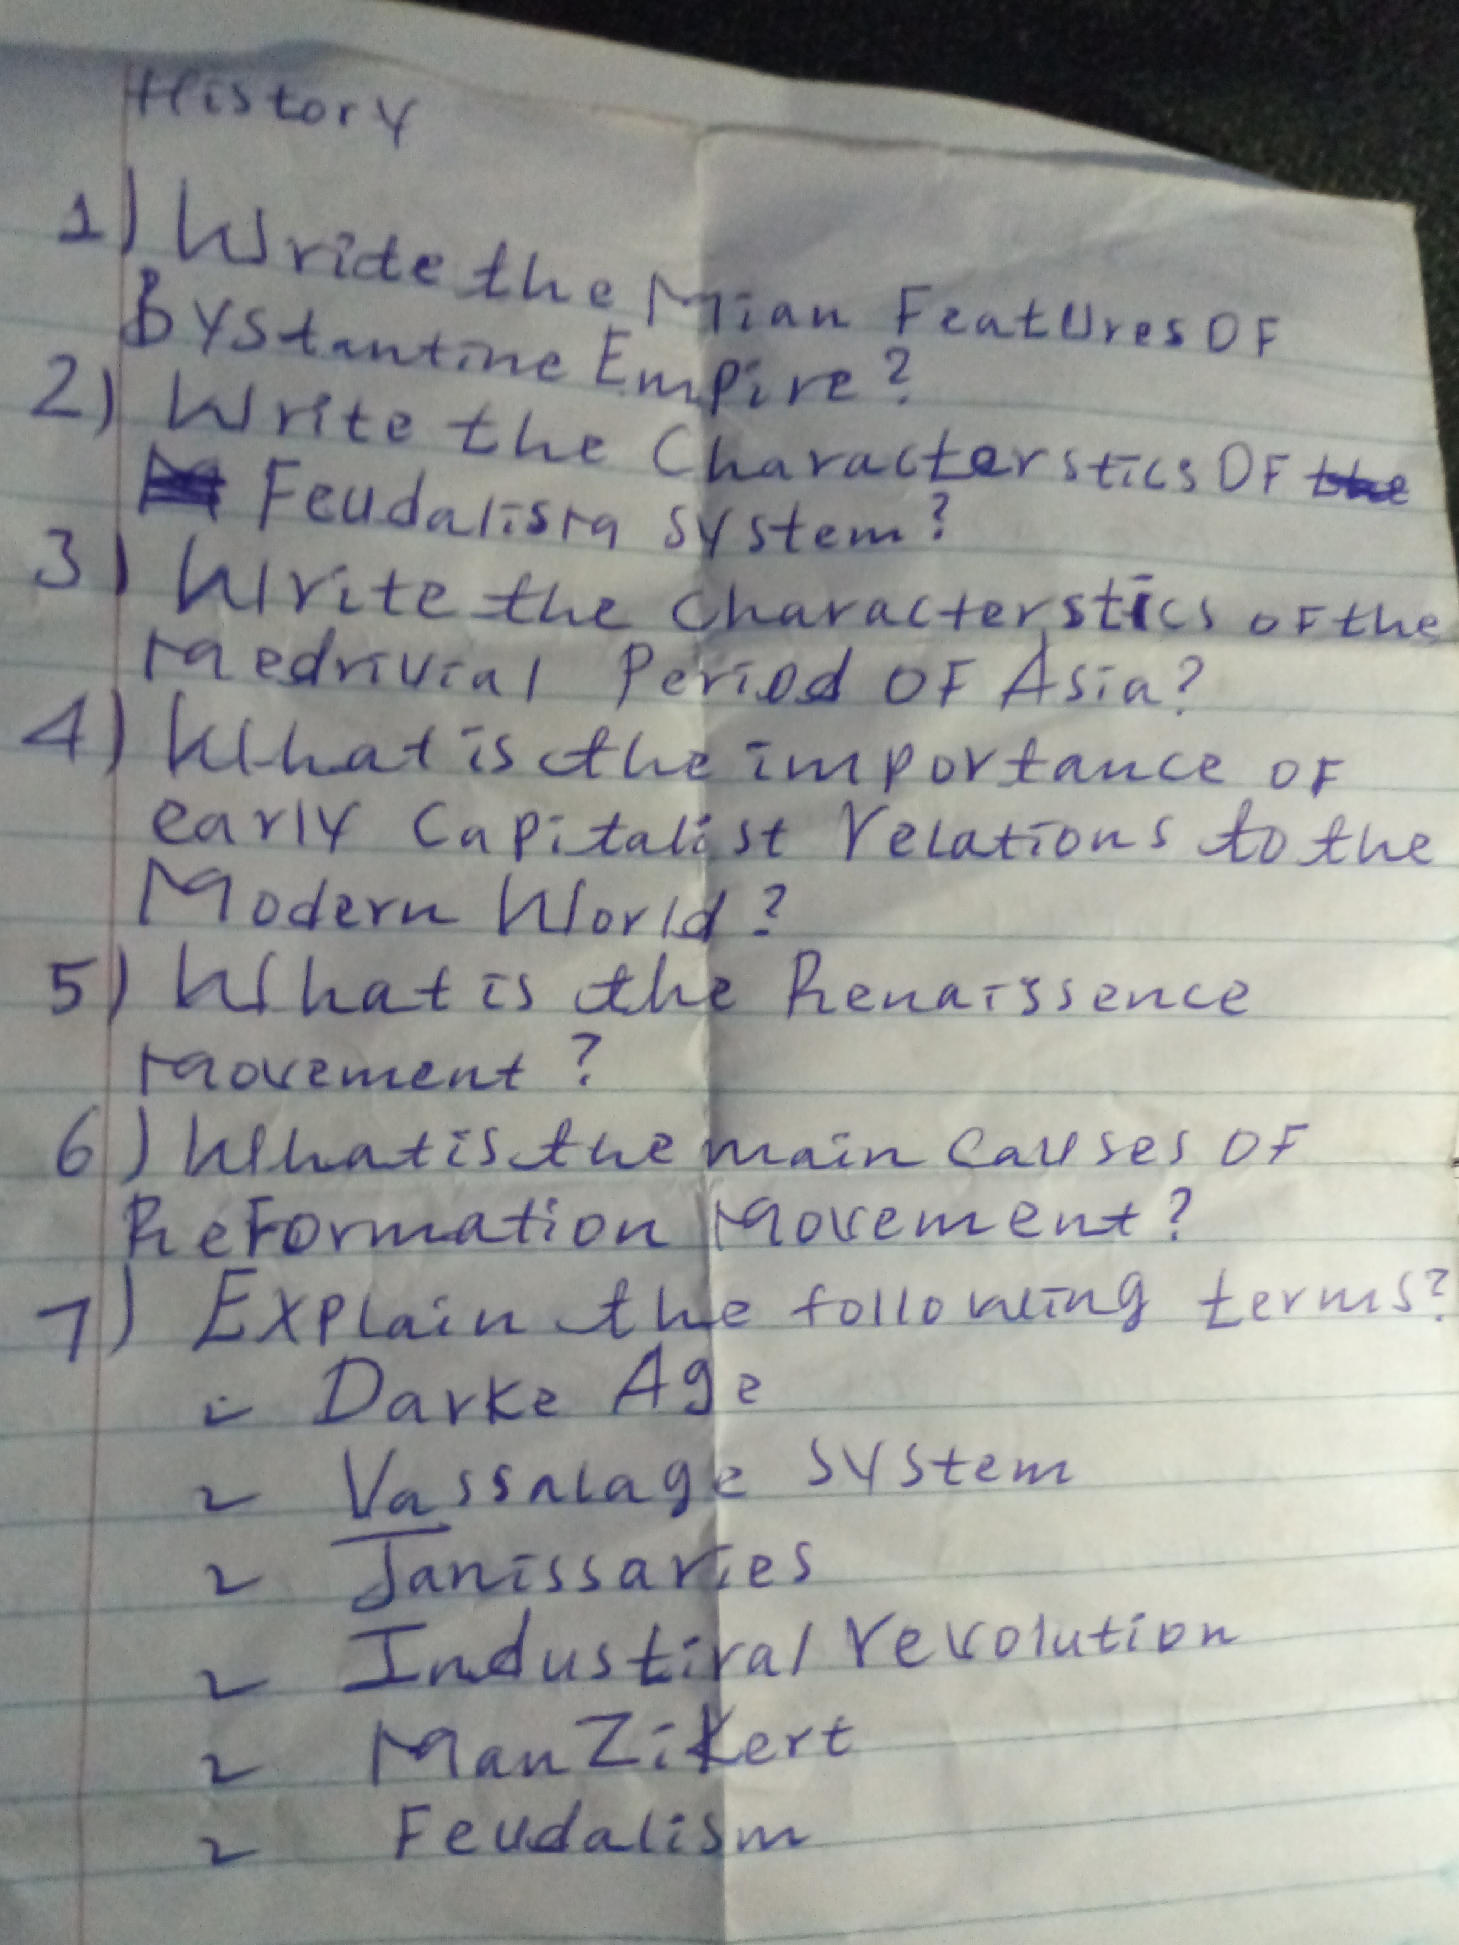 History
1) Wride the Mian Features OF
Bystantine Empire?
2) Write the Characterstics OF the
Feudalism system?
3) Write the characterstics of the
Medrivial Period OF Asia?
4) What is the importance of
early Capitalist relations to the
Modern World?
5) What is the Renaissence
Movement?
6) What is the main causes OF
Reformation Movement?
7) Explain the following terms?
- Darke Age
- Vassalage system
- Janissaries
- Industiral revolution
- ManZikert
- Feudalism